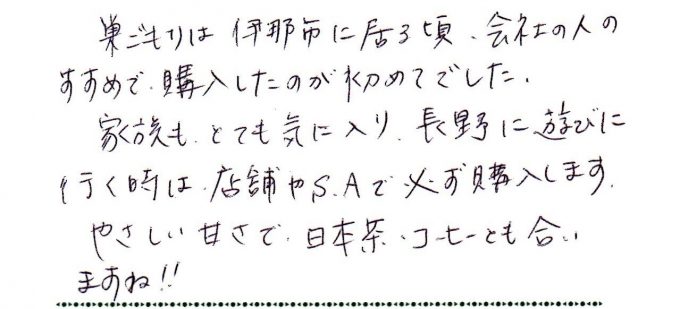 巣ごもりは伊那市に居る頃、会社の人の
すすめで、購入したのが初めてでした。
家族も、とても気に入り、長野に遊びに
行く時は、店舗やS.Aで必ず購入します。
やさしい甘さで、日本茶、コーヒーとも合い
ますね!!